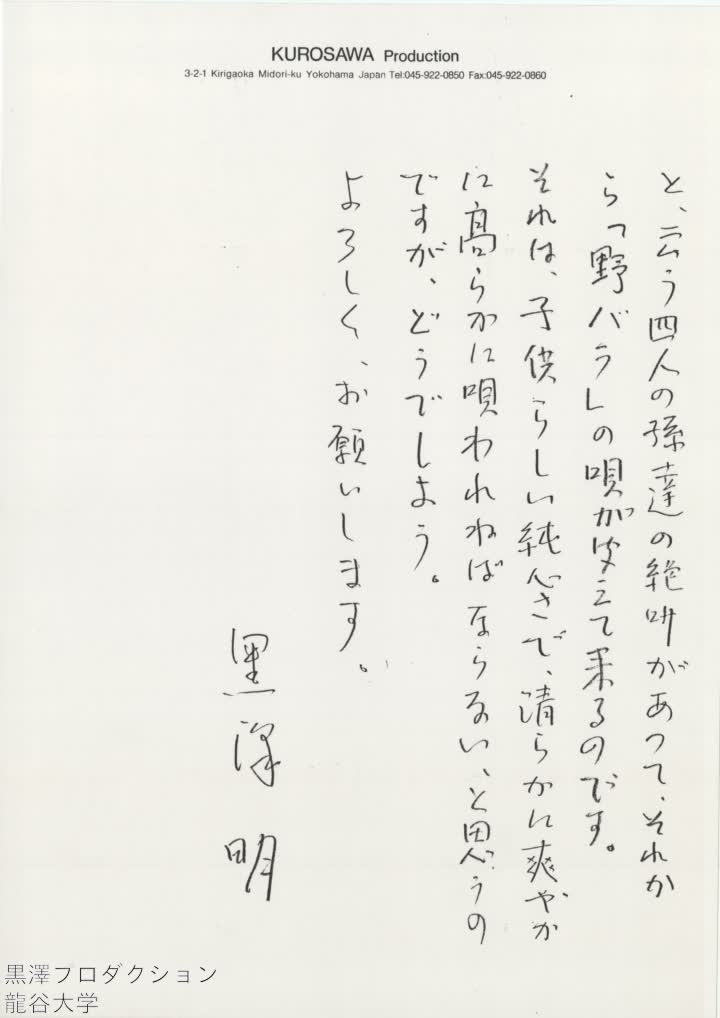 KUROSAWA Production
3-2-1 Kirigaoka Midori-ku Yokohama Japan Tel:045-922-0850 Fax:045-922-0860
と、云う四人の孫達の絶叫があって、それか
ら「野バラ」の唄が聞えて来るのです。
それは、子供らしい純心さで、清らかに爽やか
に高らかに唄われねばならない、と思うの
ですが、どうでしょう。
よろしく、お願いします。
黒澤 明
黒澤プロダクション
龍谷大学